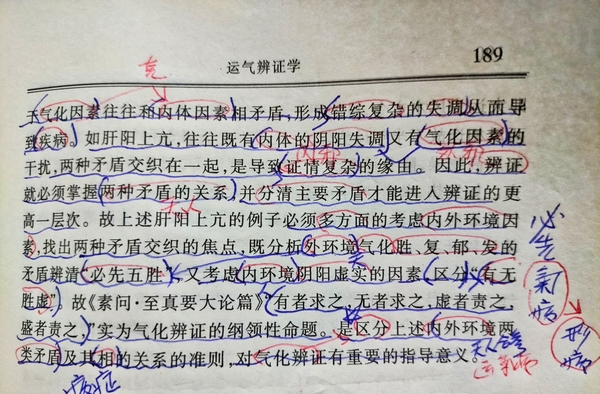 运气辨证学 189
天气化因素往往和内体因素相矛盾，形成错综复杂的失调从而导
致疾病。如肝阳上亢，往往既有内体的阴阳失调又有气化因素的
干扰，两种矛盾交织在一起，是导致证情复杂的缘由。因此，辨证
就必须掌握两种矛盾的关系，并分清主要矛盾才能进入辨证的更
高一层次。故上述肝阳上亢的例子必须多方面的考虑内外环境因
素，找出两种矛盾交织的焦点、既分析外环境气化胜、复、郁、发的
矛盾辨清“必先五胜”，又考虑内环境阴阳虚实的因素，区分“有无
胜虚”。故《素问·至真要大论篇》“有者求之，无者求之，虚者责之，
盛者责之，”实为气化辨证的纲领性命题。是区分上述内外环境两
类矛盾及其相的关系的准则，对气化辨证有重要的指导意义。
必先
氣病
形病
病症